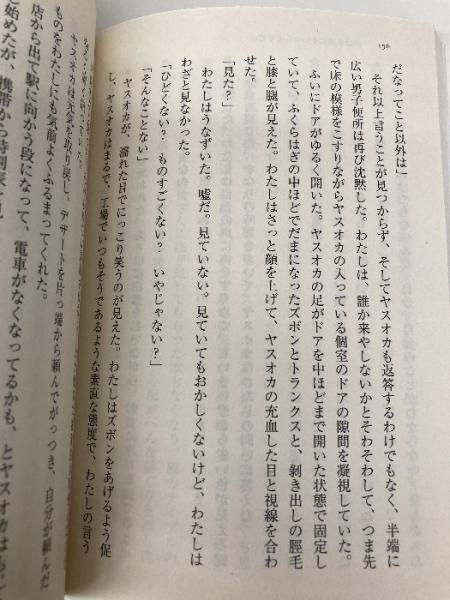 196
だなってこと以外は」
それ以上言うことが見つからず、そしてヤスオカも返答するわけでもなく、半端に
広い男子便所は再び沈黙した。わたしは、誰か来やしないかとそわそわして、つま先
で床の模様をこすりながらヤスオカの入っている個室のドアの隙間を凝視していた。
ふいにドアがゆるく開いた。ヤスオカの足がドアを中ほどまで開いた状態で固定し
ていて、ふくらはぎの中ほどでだまになったズボンとトランクスと、剝き出しの脛毛
と膝と腿が見えた。わたしはさっと顔を上げて、ヤスオカの充血した目と視線を合わ
せた。
「見た?」
わたしはうなずいた。嘘だ。見ていない。見ていてもおかしくないけど、わたしは
わざと見なかった。
「ひどくない? ものすごくない? いやじゃない?」
「そんなことない」
ヤスオカが、濡れた目でにっこり笑うのが見えた。わたしはズボンをあげるよう促
し、ヤスオカはまるで、工場でいつもそうであるような素直な態度で、わたしの言う
ヤスオカは元気を取り戻し、デザートを片っ端から頼んでがっつき、自分が頼んだ
ものをわたしにも気前よくふるまってくれた。
店から出て駅に向かう段になって、電車がなくなってるかも、とヤスオカは
と始めたが、携帯から時刻表を見